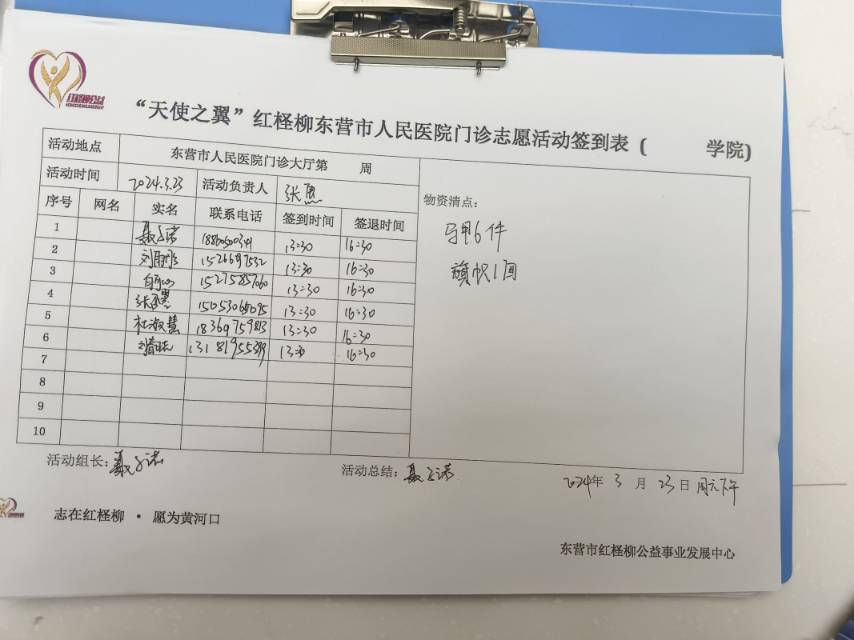 红柽柳公益
“天使之翼”红柽柳东营市人民医院门诊志愿活动签到表（ 学院）
活动地点 东营市人民医院门诊大厅第 周
活动时间 2024.3.23 活动负责人
物资清点：
序号 网名 实名 联系电话 签到时间 签退时间
马甲6件
1 聂子诺 13:30 16:30
2 13:30 16:30
旗帜1面
3 13:30 16:30
4 13:30 16:30
5 杜淑慧 18369759813 13:30 16:30
6 13181955399 13:30 16:30
7
8
9
10
活动组长：聂子诺 活动总结：聂子诺 2024年 3 月 23日 周六下午
志在红柽柳 · 愿为黄河口
东营市红柽柳公益事业发展中心